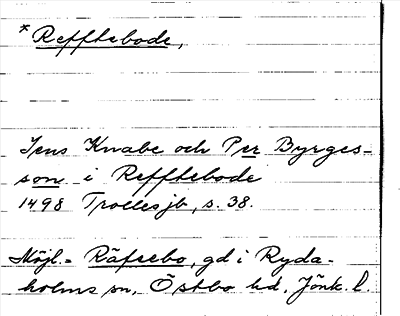 * Reffttebode,
Jens Knabe och Per Byrges-
son i Reffttebode
1498 Trolles jb, s. 38.
Möjl. = Räfsebo, gd i Ryda-
holms sn, Östbo hd, Jönk. l.